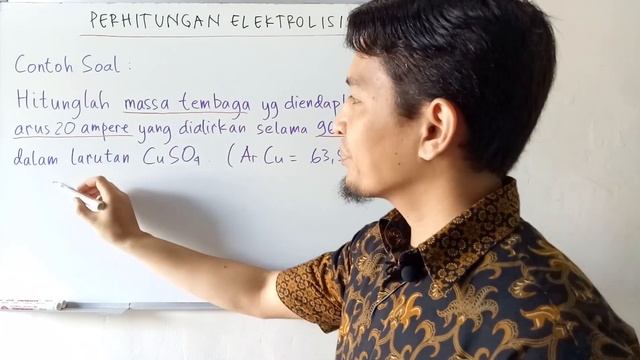 PERHITUNGAN ELEKTROLISIS
Contoh Soal :
Hitunglah massa tembaga yg diendap
arus 20 ampere yang dialirkan selama
dalam larutan CuSO4. (Ar Cu = 63,